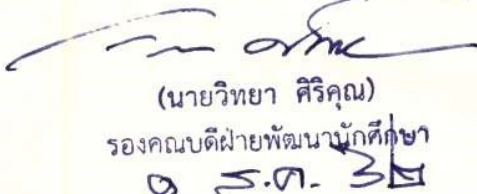 (นายวิทยา ศิริคุณ)
รองคณบดีฝ่ายพัฒนานักศึกษา
๑ ธ.ค. ๓๒